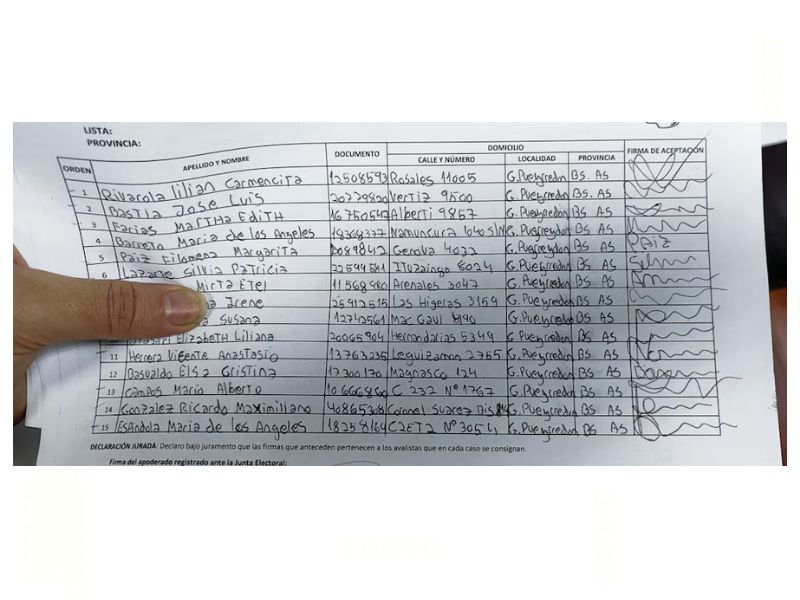 LISTA:
PROVINCIA:
ORDEN APELLIDO Y NOMBRE DOCUMENTO DOMICILIO FIRMA DE ACEPTACIÓN
CALLE Y NÚMERO LOCALIDAD PROVINCIA
1 Rivarola lilian Carmencita 12508593 Rosales 11005 G.Pueyrredon Bs. As
2 Bastia Jose Luis 20779820 Vertiz 9500 G.Pueyrredon Bs. As
3 Farias Martha Edith 16750542 Alberti 9857 G.Pueyrredon Bs As
4 Barreto Maria de los Angeles Namuncura G.Pueyrredon Bs As
5 Paiz Filomena Margarita Genova 4032 G.Pueyrredon Bs As Paiz
6 Lazarte Silvia Patricia Ituzaingo 8024 G.Pueyrredon Bs As
Mirta Etel Arenales 3047 G.Pueyrredon Bs As
Irene 25912515 Las Higeras 3159 G.Pueyrredon Bs As
Susana 12742561 Mac Gaul G.Pueyrredon Bs As
Elizabeth Liliana 20065904 Hernandarias 5349 G.Pueyrredon Bs As
11 Herrera Vicente Anastasio 13763235 Leguizamon 2755 G.Pueyrredon Bs As
12 Basualdo Elsa Cristina 17300170 Magnasco 124 G.Pueyrredon Bs As
13 Campos Mario Alberto C 232 Nº 1767 G.Pueyrredon Bs As
14 Gonzalez Ricardo Maximiliano 40865308 Coronel Suarez G.Pueyrredon Bs As
15 Espindola Maria de los Angeles 18258164 Nº 3054 G.Pueyrredon Bs As
DECLARACIÓN JURADA: Declaro bajo juramento que las firmas que anteceden pertenecen a los avalistas que en cada caso se consignan.
Firma del apoderado registrado ante la Junta Electoral: